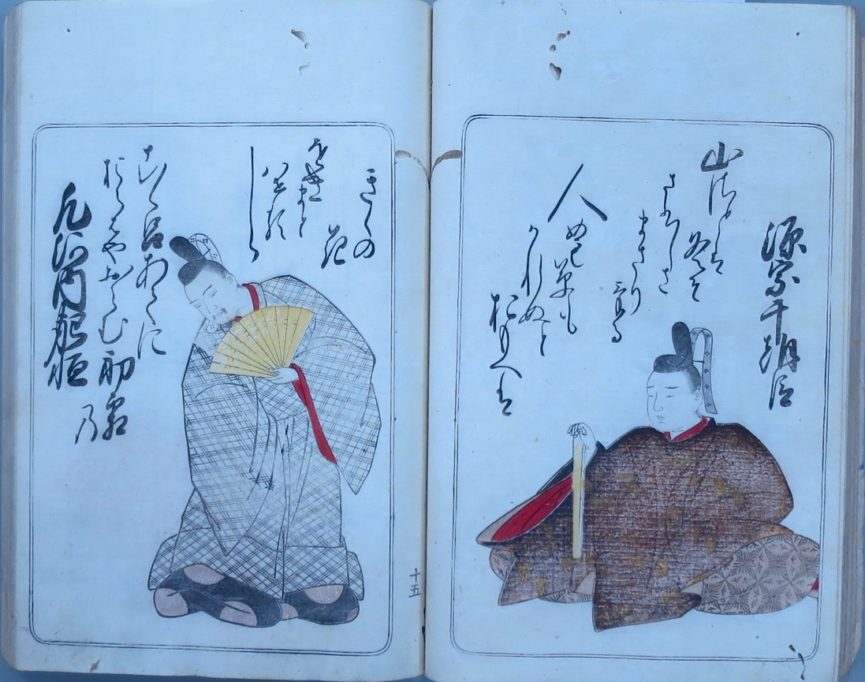 源宗于朝臣
山さとは
冬そ
さひしさ
まさり
ける
人めも草も
かれぬと
おもへは
凡河内躬恒
こゝろあてに
おらはやおらむ初霜
乃
をきまと
はせる
しら
きくの
花
十五